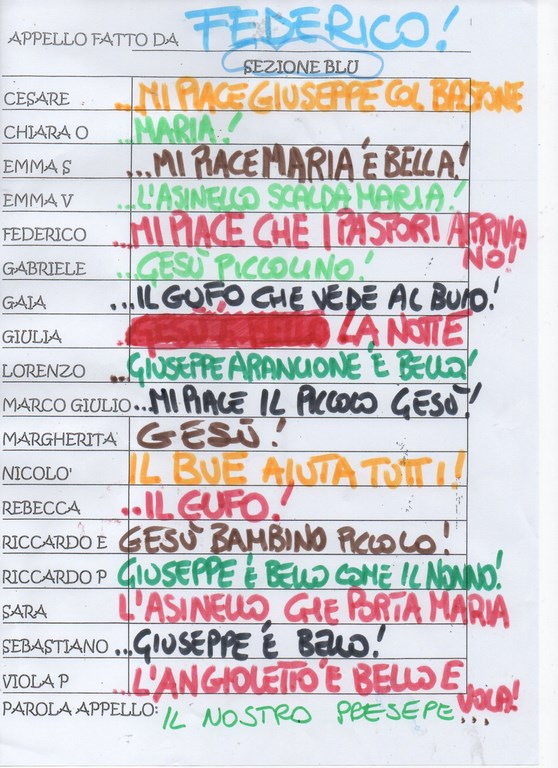 APPELLO FATTO DA FEDERICO!
SEZIONE BLU
CESARE ...MI PIACE GIUSEPPE COL BASTONE
CHIARA O ...MARIA!
EMMA S ...MI PIACE MARIA È BELLA!
EMMA V ...L'ASINELLO SCALDA MARIA!
FEDERICO ...MI PIACE CHE I PASTORI ARRIVA
NO!
GABRIELE ...GESÙ PICCOLINO!
GAIA ...IL GUFO CHE VEDE AL BUIO!
GIULIA ...GESÙ È BELLO LA NOTTE
LORENZO ...GIUSEPPE ARANCIONE È BELLO!
MARCO GIULIO ...MI PIACE IL PICCOLO GESÙ!
MARGHERITA GESÙ!
NICOLO' IL BUE AIUTA TUTTI!
REBECCA ...IL GUFO!
RICCARDO E GESÙ BAMBINO PICCOLO!
RICCARDO P GIUSEPPE È BELLO COME IL NONNO!
SARA L'ASINELLO CHE PORTA MARIA
SEBASTIANO ...GIUSEPPE È BELLO!
VIOLA P ...L'ANGIOLETTO È BELLO E
VOLA!
PAROLA APPELLO: IL NOSTRO PRESEPE...